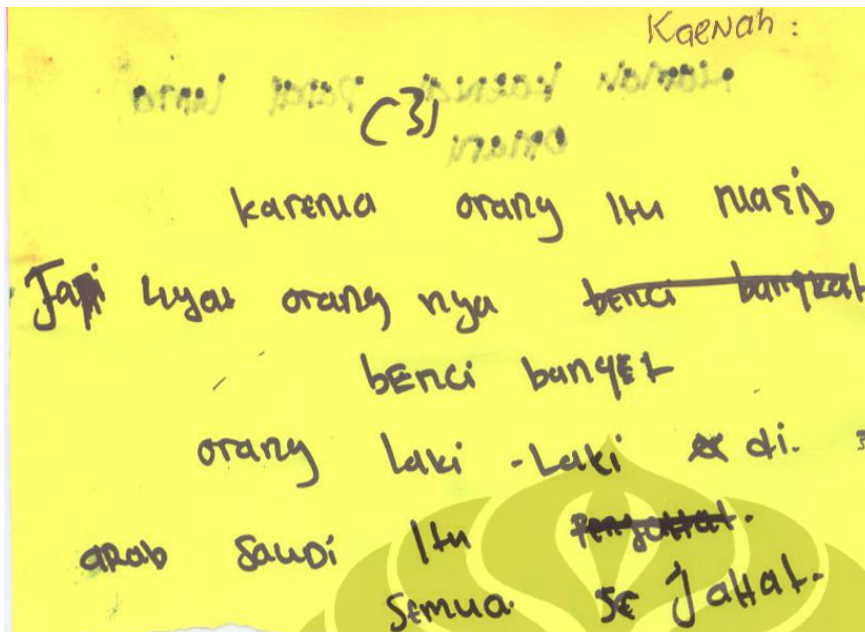 Kaenah :
(3)
karena orang Itu masib
Tapi liyat orang nya benci bangkat
benci banget
orang laki - Laki di.
arab Saudi Itu
Semua. SE JaHat.